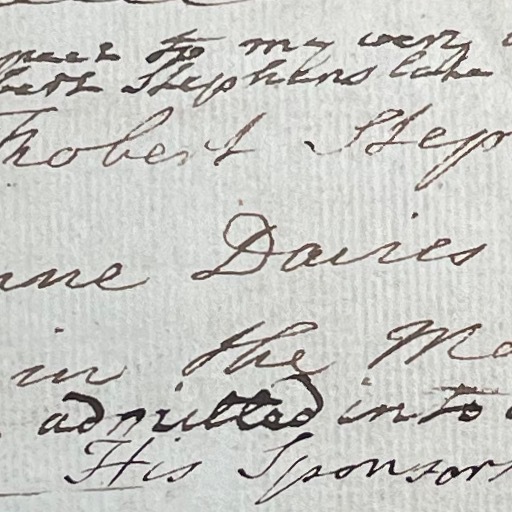 to my very
Stephens late
Robert Step
nne Davies
in the Mo
admitted into
His Sponsors